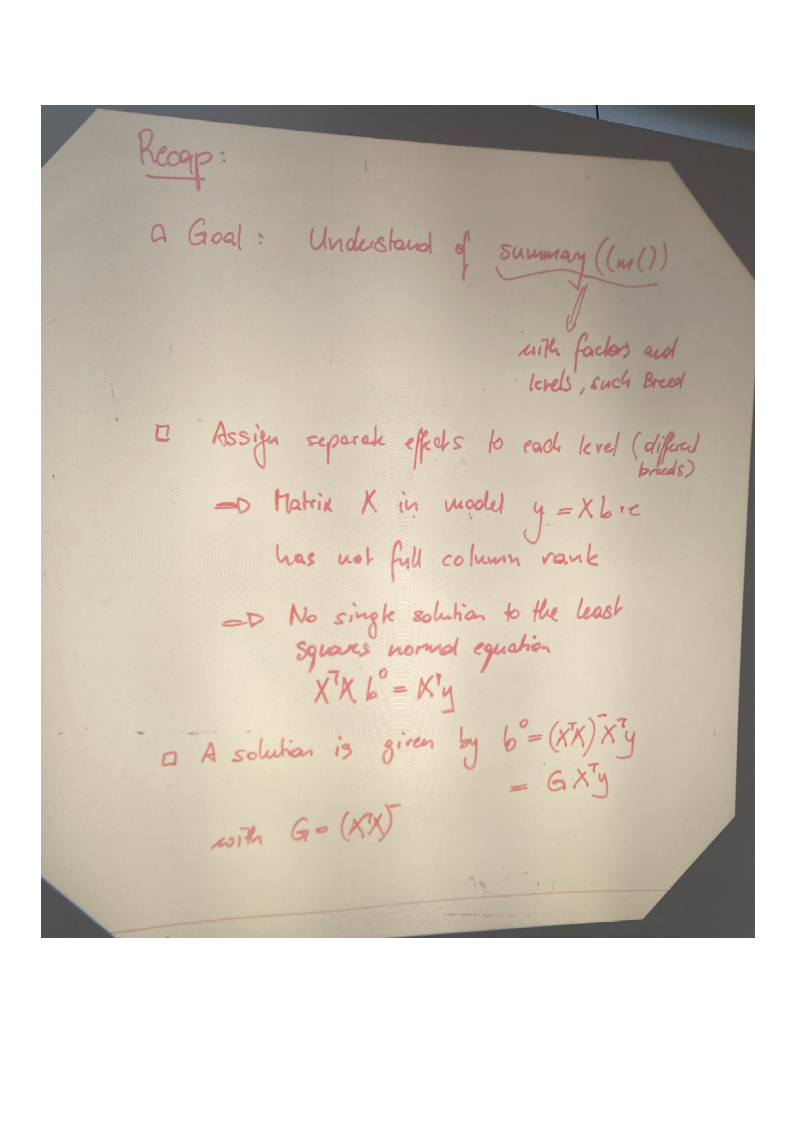 Recap:
□ Goal: Understand of summary(lm())
with factors and
levels, such Breed
□ Assign separate effects to each level (different
breeds)
⇒ Matrix X in model y = Xb + e
has not full column rank
⇒ No single solution to the least
squares normal equation
XᵀX b⁰ = Xᵀy
□ A solution is given by b⁰ = (XᵀX)⁻Xᵀy
= GXᵀy
with G = (XᵀX)⁻